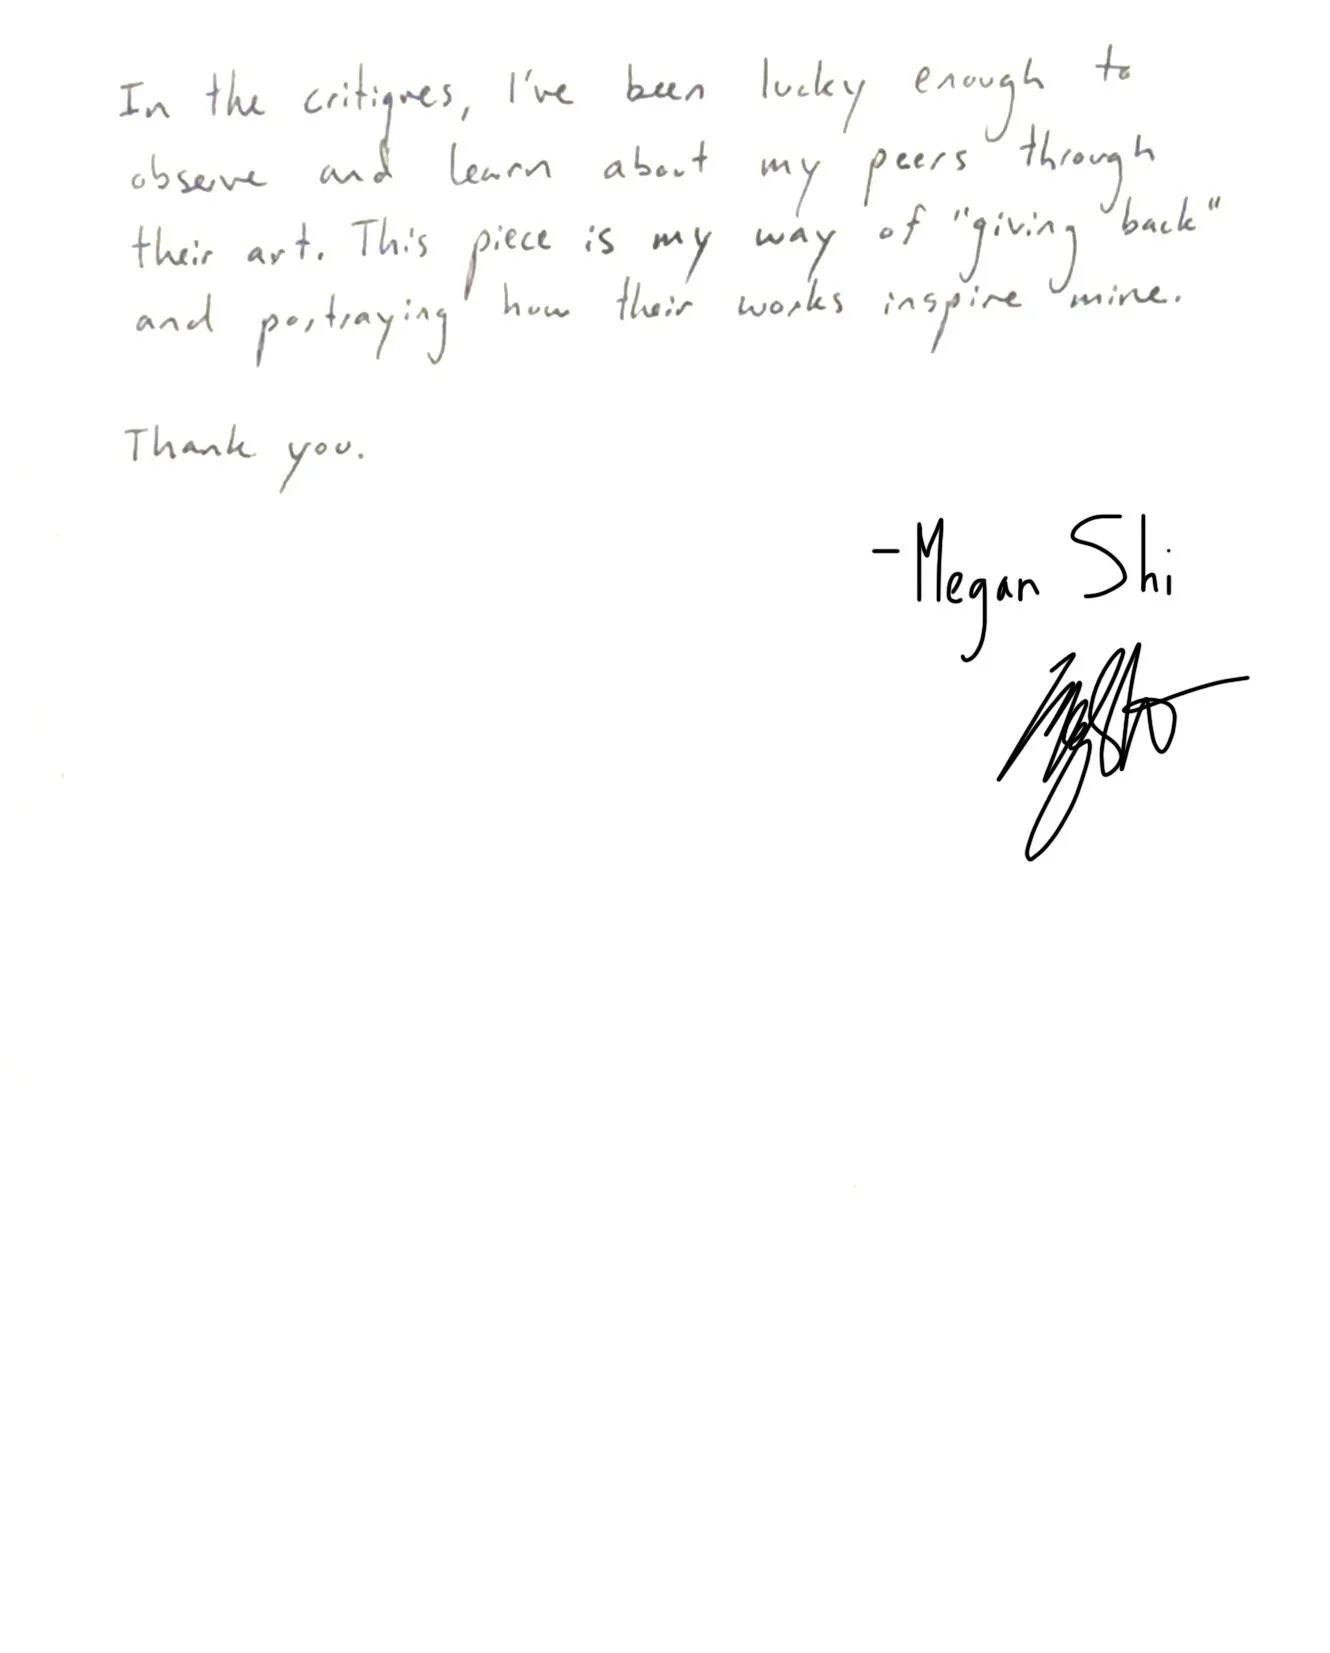 In the critiques, I've been lucky enough to
observe and learn about my peers through
their art. This piece is my way of "giving back"
and portraying how their works inspire mine.
Thank you.
-Megan Shi